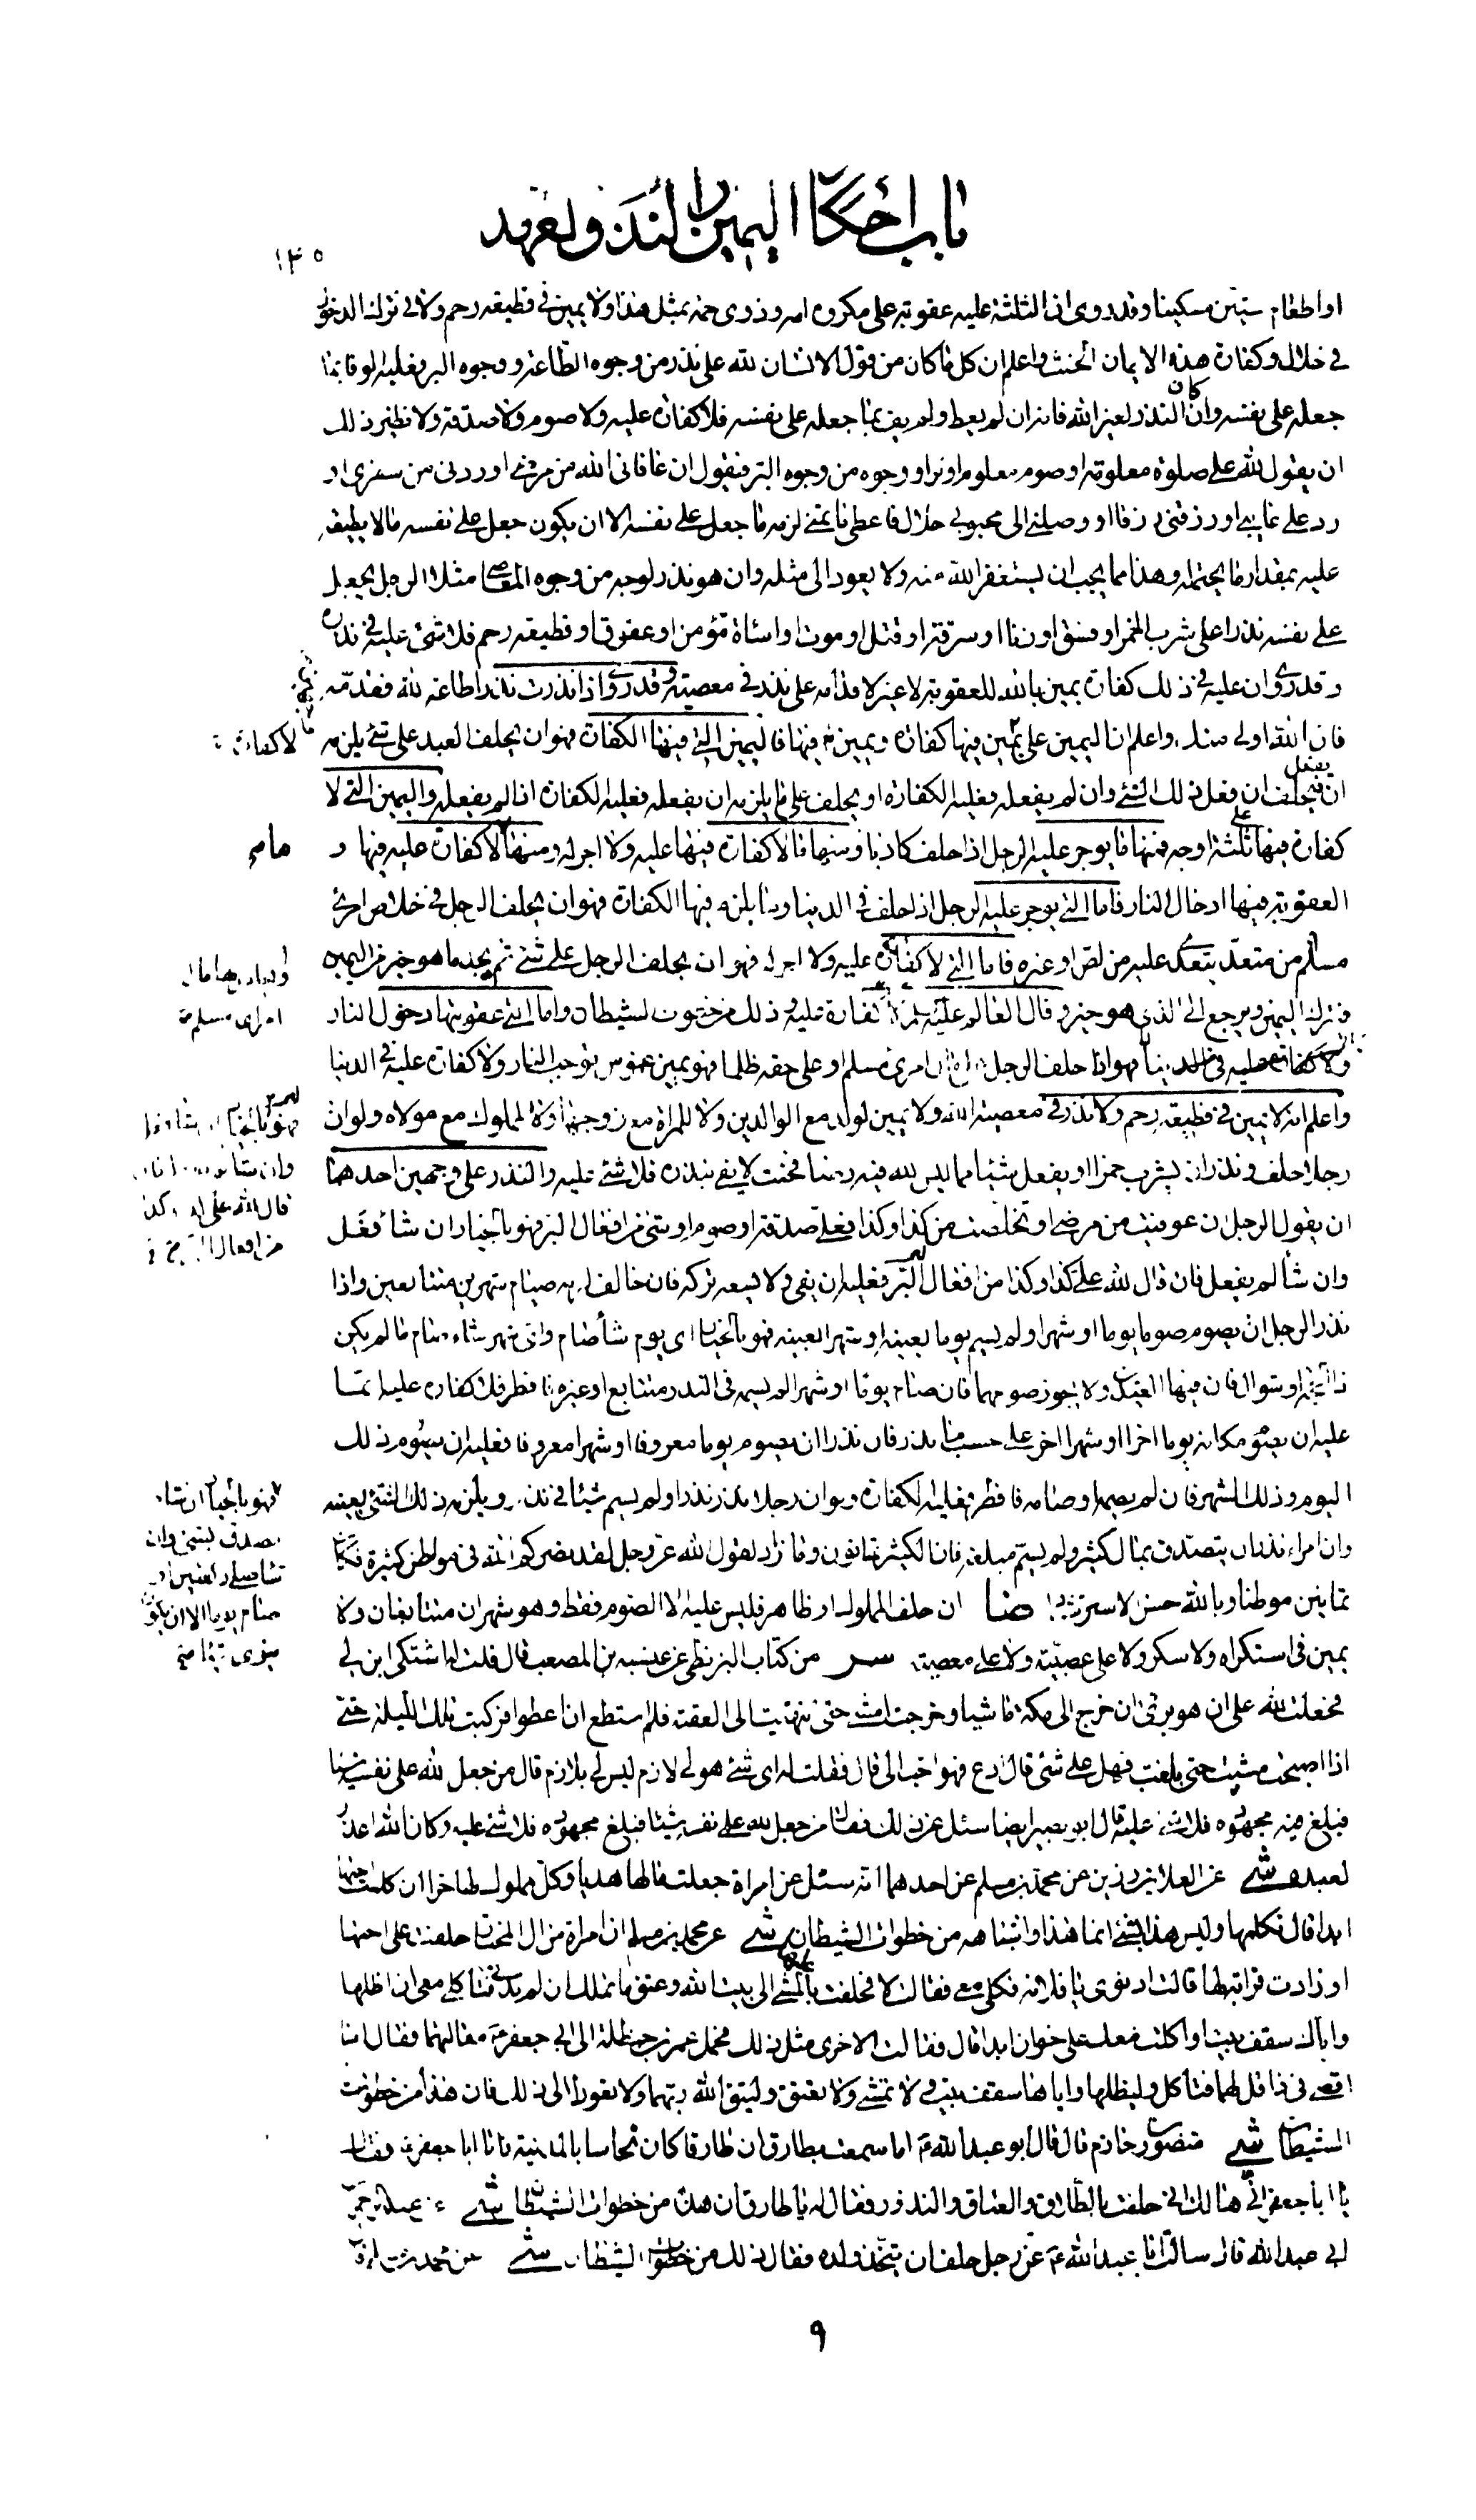 باب احكام اليمين والنذر والعهد
١٤٥
او اطعام ستين مسكينا وقد روى ان الثلثة عليه عقوبة على مكروه امر وذوى حمة بمثل هذا ولا يمين فى قطيعة رحم ولا فى ترك الدخول
فى حلال وكفارة هذه الايمان الحنث واعلم ان كل ما كان من قول الانسان لله على نذر من وجوه الطاعة ووجوه البر فعليه الوفا بما
جعله على نفسه وان كان النذر لغير الله فانه ان لم يعط ولم يف بما جعله على نفسه فلا كفارة عليه ولا صوم ولا صدقة ولا نظير ذلك
ان يقول لله على صلوة معلومة او صوم معلوم او بر او وجوه من وجوه البر فيقول ان عافانى الله من مرضى او ردنى من سفرى او
رد على غايبى او رزقنى رزقا او وصلنى الى محبوبى حلال فاعطى ما تمنى لزمه ما جعل على نفسه الا ان يكون جعل على نفسه ما لا يطيقه
عليه بمقدار ما يحتمله وهذا مما يجب ان يستغفر الله منه ولا يعود الى مثله وان هو نذر لوجه من وجوه المعاصى مثل الرجل يجعل
على نفسه نذرا على شرب الخمر او فسق او زنا او سرقة او قتل او موت او اسائة مؤمن او عقوق او قطيعة رحم فلا شئ عليه فى نذره
وقد روى ان عليه فى ذلك كفارة يمين بالله للعقوبة لا غير لاقدامه على نذر فى معصية وقد روى واذا نذرت نذرا طاعة لله فقدمه
فان الله اولى منك واعلم ان اليمين على يمين فيها كفارة ويمين فيها فاليمين التى فيها الكفارة فهو ان يحلف العبد على شئ يلزمه
لا كفارة
ان يفعل فيحلف ان فعل ذلك الشئ وان لم يفعله فعليه الكفارة او يحلف على ما يلزمه ان يفعله فعليه الكفارة اذا لم يفعله واليمين التى لا
كفارة فيها على ثلثة اوجه فمنها ما يوجر عليه الرجل اذا حلف كاذبا ومنها ما لا كفارة فيها عليه ولا اجر له ومنها لا كفارة عليه فيها و
العقوبة فيها ادخال النار فاما التى يوجر عليه الرجل اذا حلف فى الدنيا وما يلزمه فيها الكفارة فهو ان يحلف الرجل فى خلاص امرئ
مسلم من متعد يتعدى عليه من لص او غيره فاما التى لا كفارة عليه ولا اجر له فهو ان يحلف الرجل على شئ ثم يجد ما هو خير من اليمين
فيترك اليمين ويرجع الى الذى هو خير وقال العالم عليه السلم لا كفارة عليه وذلك من خطوات الشيطان واما التى عقوبتها دخول النار
ولا كفارة عليه فى الدنيا فهو اذا حلف الرجل على مال امرئ مسلم او على حقه ظلما فهو يمين غموس توجب النار ولا كفارة عليه فى الدنيا
واعلم انه لا يمين فى قطيعة رحم ولا نذر فى معصية الله ولا يمين لولد مع الوالدين ولا للمراة مع زوجها ولا للمملوك مع مولاه ولو ان
رجلا حلف ونذر ان يشرب خمرا او يفعل شيئا مما ليس لله فيه رضا فحنث لا يفى بنذره فلا شئ عليه والنذر على وجهين احدهما
ان يقول الرجل ان عوفيت من مرضى او تخلصت من كذا وكذا فعلى صدقة او صوم او شئ من افعال البر فهو بالخيار ان شاء فعل
وان شاء لم يفعل فان قال لله على كذا وكذا من افعال البر فعليه ان يفى ولا يسعه تركه فان خالف لزمه صيام شهرين متتابعين واذا
نذر الرجل ان يصوم صوما يوما او شهرا ولم يسم يوما بعينه او شهرا بعينه فهو بالخيار اى يوم شاء صام واى شهر شاء صام ما لم يكن
ذا الحجة او شوال فان فيها العيدان ولا يجوز صومهما فان صام يوما او شهرا لم يسمه فى النذر متتابع او غيره فافطر فلا كفارة عليه انما
عليه ان يصوم مكانه يوما اخرا او شهرا اخر على حسب ما نذر فان نذر ان يصوم يوما معروفا او شهرا معروفا فعليه ان يصوم ذلك
اليوم وذلك الشهر فان لم يصمه او صامه فافطر فعليه الكفارة ولو ان رجلا نذر نذرا ولم يسم شيئا فى نذره ويلزمه ذلك الشئ بعينه
فهو بالخيار ان شاء
تصدق بشئ وان
شاء صلى ركعتين او
صام يوما الا ان يكون
ينوى شيئا
وان امراء نذر ان يتصدق بمال كثير ولم يسم مبلغه فان الكثير ثمانون وما زاد لقول الله عز وجل لقد نصركم الله فى مواطن كثيرة فكان
ثمانين موطنا وبالله حسن الاسترشاد ضا ان حلف المملوك او ظاهر فليس عليه الا الصوم فقط وهو شهران متتابعان ولا
يمين فى استكراه ولا سكر ولا على عصبية ولا على معصية سر من كتاب البزنطى عن عنبسة بن المصعب قال قلت له اشتكى ابن لى
فجعلت لله على ان هو برئ ان اخرج الى مكة ماشيا وخرجت امشى حتى انتهيت الى العقبة فلم استطع ان اخطو فركبت تلك الليلة حتى
اذا اصبحت مشيت حتى بلغت فهل على شئ قال اذبح فهو احب الى قال فقلت له اى شئ هو لى لازم ليس لى بلازم قال من جعل لله على نفسه شيئا
فبلغ فيه مجهوده فلا شئ عليه قال ابو بصير ايضا سئل عن ذلك فقال من جعل لله على نفسه شيئا فبلغ مجهوده فلا شئ عليه وكان الله اعذر
لعبده شى عن العلا بن رزين عن محمد بن مسلم عن احدهما انه سئل عن امراة جعلت مالها هديا وكل مملوك لها حرا ان كلمت اختها
ابدا قال تكلمها وليس هذا بشئ انما هذا واشباهه من خطوات الشيطان شى عن محمد بن مسلم ان امراة من ال المختار حلفت على اختها
او ذات قرابة لها قالت ادنوى يا فلانه فكلى معى فقالت لا فحلفت بالمشى الى بيت الله وعتق ما تملك ان لم تدنى فتاكلى معى ان اظلها
واياك سقف بيت او اكلت معك على خوان ابدا قال فقالت الاخرى مثل ذلك فحمل عمر بن حنظلة الى ابى جعفر ع مقالتهما فقال انا
اقضى فى ذا قل لهما فتاكل وليظلها واياها سقف بيت ولا تمشى ولا تعتق وليتق الله ربهما ولا تعودا الى ذلك فان هذا من خطوات
الشيطان شى منصور بن حازم قال قال ابو عبد الله ع اما سمعت بطارق ان طارقا كان نخاسا بالمدينة فاتا ابا جعفر ع فقال
يا ابا جعفر انى هالك انى حلفت بالطلاق والعتاق والنذور فقال له يا طارق ان هذه من خطوات الشيطان شى
ابى عبد الله قال سالت ابا عبد الله ع عن رجل حلف ان ينحر ولده فقال ذلك من خطوات الشيطان شى عن محمد بن مسلم
٩